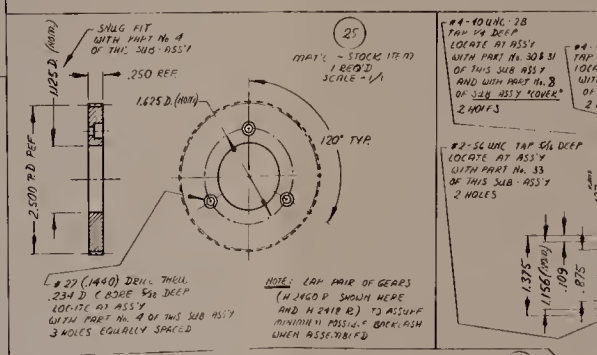 SNUG FIT
WITH PART No 4
OF THIS SUB-ASS'Y
1.125 D. (NOM.)
.250 REF.
2.500 P.D REF
25
MAT'L - STOCK ITEM
1 REQ'D
SCALE - 1/1
1.625 D. (NOM)
120° TYP.
#27 (.1440) DRILL THRU
.234 D C'BORE 5/32 DEEP
LOCATE AT ASS'Y
WITH PART No. 4 OF THIS SUB ASS'Y
3 HOLES EQUALLY SPACED
NOTE: LAP PAIR OF GEARS
(H 2460 R SHOWN HERE
AND H 2418 R) TO ASSURE
MINIMUM POSSIBLE BACKLASH
WHEN ASSEMBLED
#4-40 UNC-2B
TAP 1/4 DEEP
LOCATE AT ASS'Y
WITH PART No. 30 & 31
OF THIS SUB ASS'Y
AND WITH PART No. 8
OF SUB ASS'Y "COVER"
2 HOLES
#4-
TAP
LOCA
WIT
OF
2
#2-56 UNC TAP 5/16 DEEP
LOCATE AT ASS'Y
WITH PART No. 33
OF THIS SUB-ASS'Y
2 HOLES
1.375
1.156 (NOM)
.109
.875